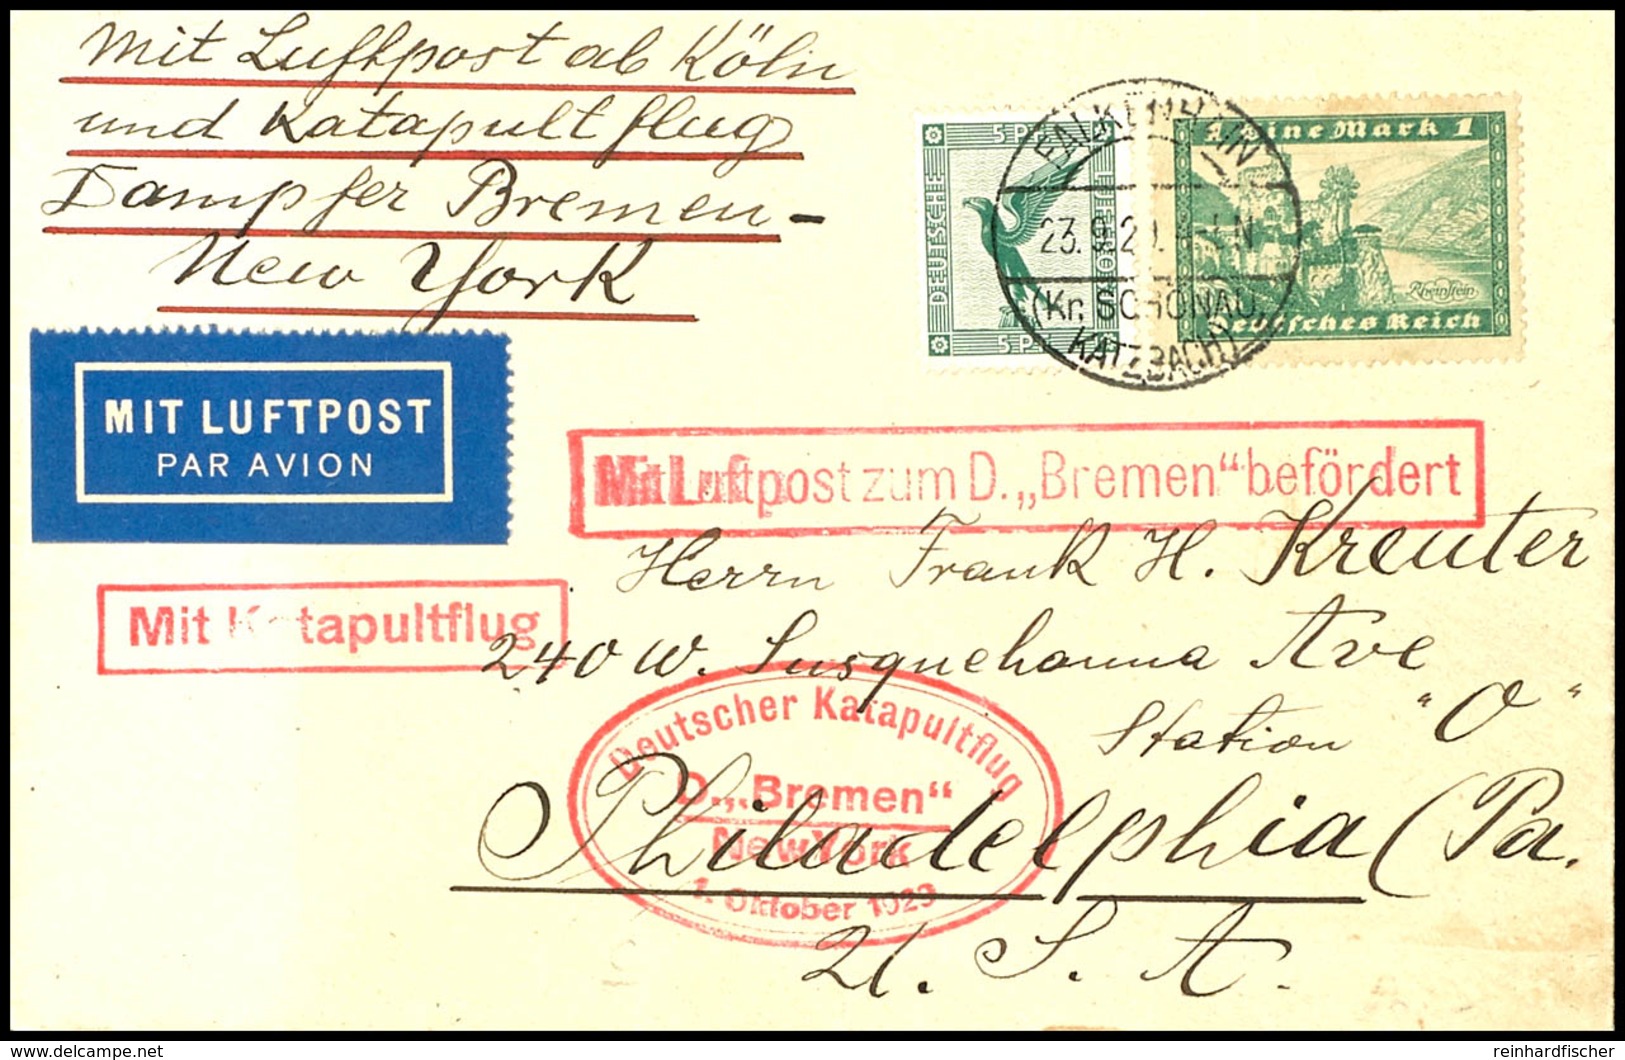 Mit Luftpost ab Köln
und Katapultflug
Dampfer Bremen-
New York
5 Pf
DEUTSCHE
Eine Mark 1
Rheinstein
Deutsches Reich
BALKENHAIN
23.9.29.
(Kr. SCHÖNAU,
KATZBACH)
MIT LUFTPOST
PAR AVION
Mit Luftpost zum D. „Bremen“ befördert
Herrn Frank H. Kreuter
Mit Katapultflug
240 W. Susquehanna Ave
Station "O"
Deutscher Katapultflug
D. „Bremen“
New York
1. Oktober 1929
Philadelphia (Pa.
U. S. A.
delcampe.net
reinhardfischer